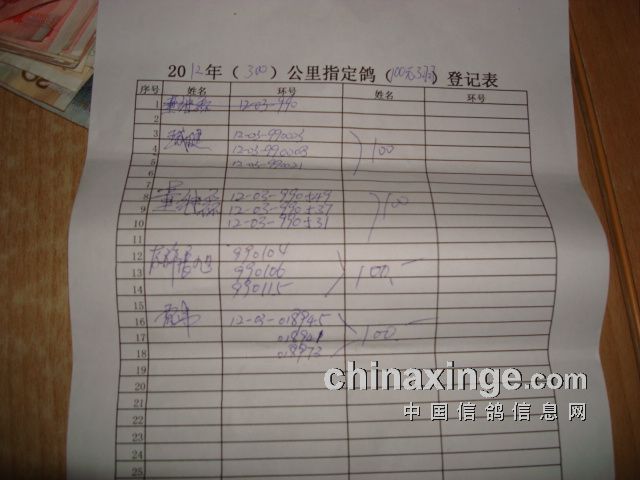 2012年（300）公里指定鸽（100元3羽）登记表
序号 姓名 环号 姓名 环号
1 12-03-990
2
3 12-03-990003
4 12-03-990003 100
5 12-03-990021
6
7
8 12-03-990549 100
9 12-03-990537
10 12-03-990531
11
12 990104
13 990106 100
14 990115
15
16 12-03-018945
17 018941 100
18 018973
19
20
21
22
23
24
25
chinaxinge.com
中国信鸽信息网